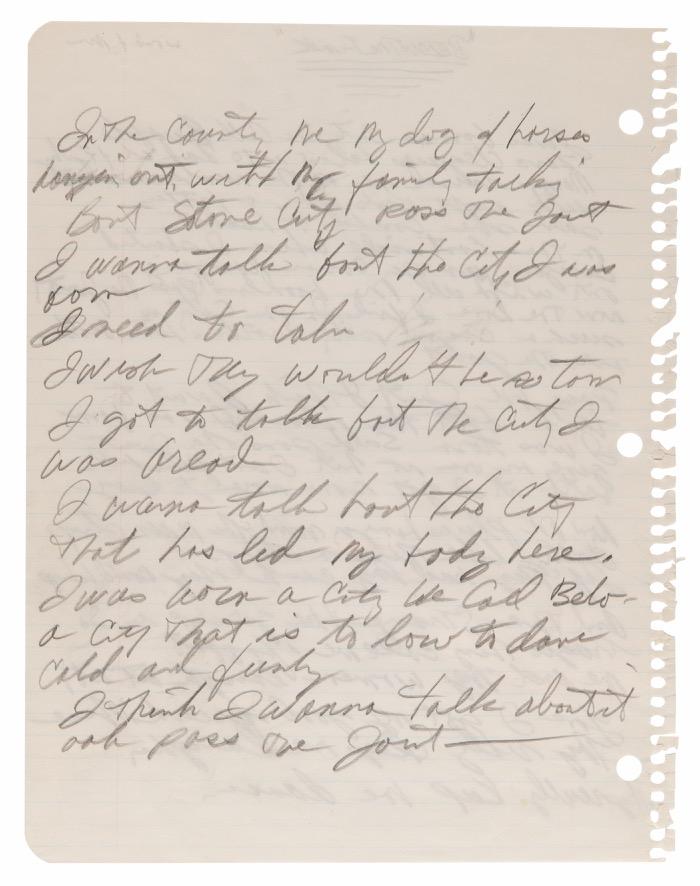 In the County me my dog & horses
hangin out, with my family talkin
Bout Stone City pass the Joint
I wanna talk bout the City I was
born
I need to talk
I wish they wouldn't be so torn
I got to talk bout the City I
was bread
I wanna talk bout the City
That has led my body here.
I was born a City We Call Belo-
a City That is to low to dare
Cold and funky
I think I Wanna talk about it
ooh pass the Joint